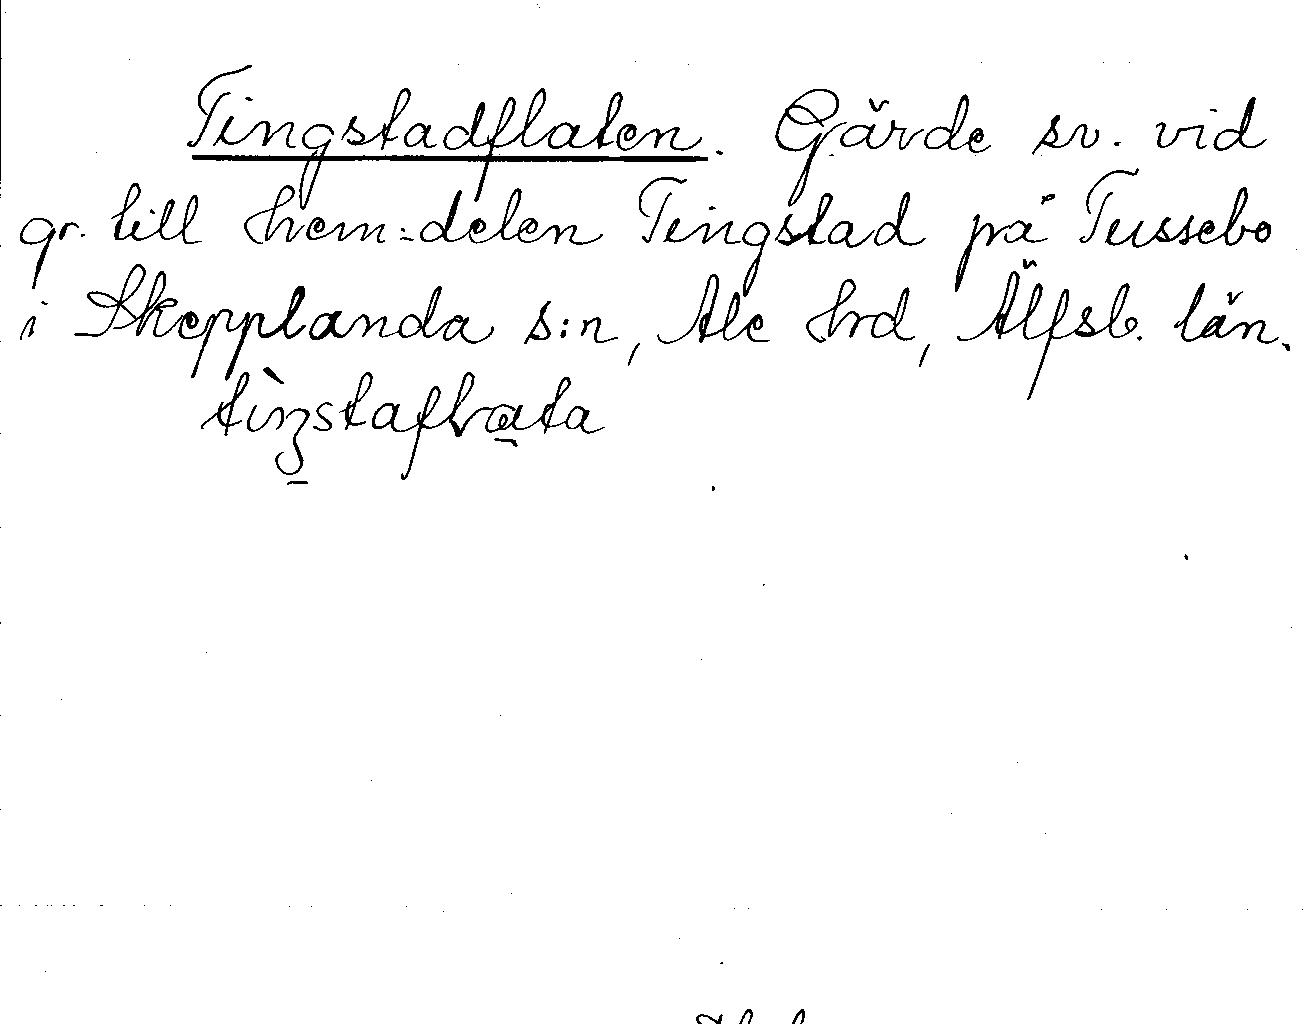 Tingstadflaten. Gärde sv. vid
gr. till hem:delen Tingstad på Tussebo
i Skepplanda s:n, Ale hrd, Älfsb. län.